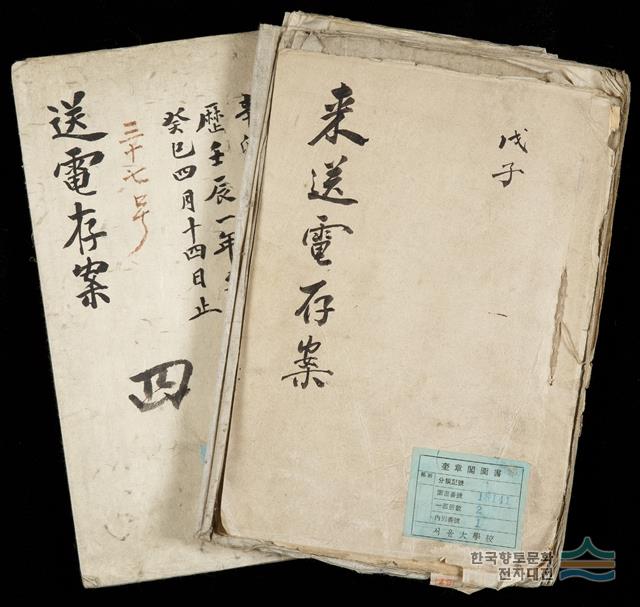 戊子
来送電存案
奎章閣圖書
分類記號
圖書番號
一部冊數 2
內別番號 1
서울大學校
辛
歷壬辰一年
癸巳四月十四日止
三十七号
送電存案
四
한국향토문화
전자대전